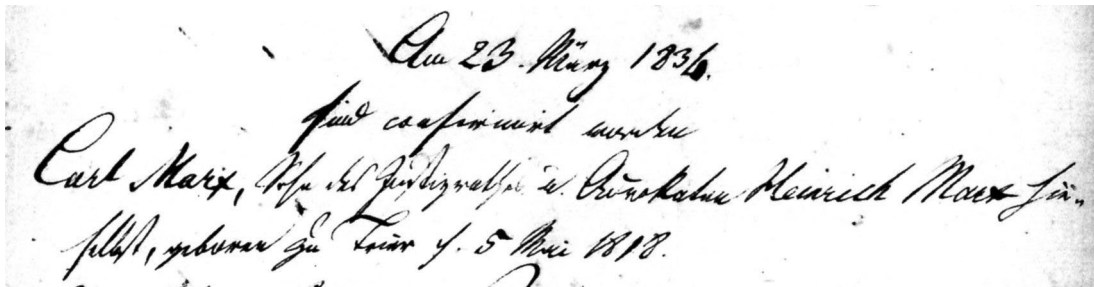 Am 23. März 1834.
sind confirmirt worden
Carl Marx, Sohn des Justizrathes u. Advokaten Heinrich Marx hie-
selbst, geboren zu Trier d. 5 Mai 1818.